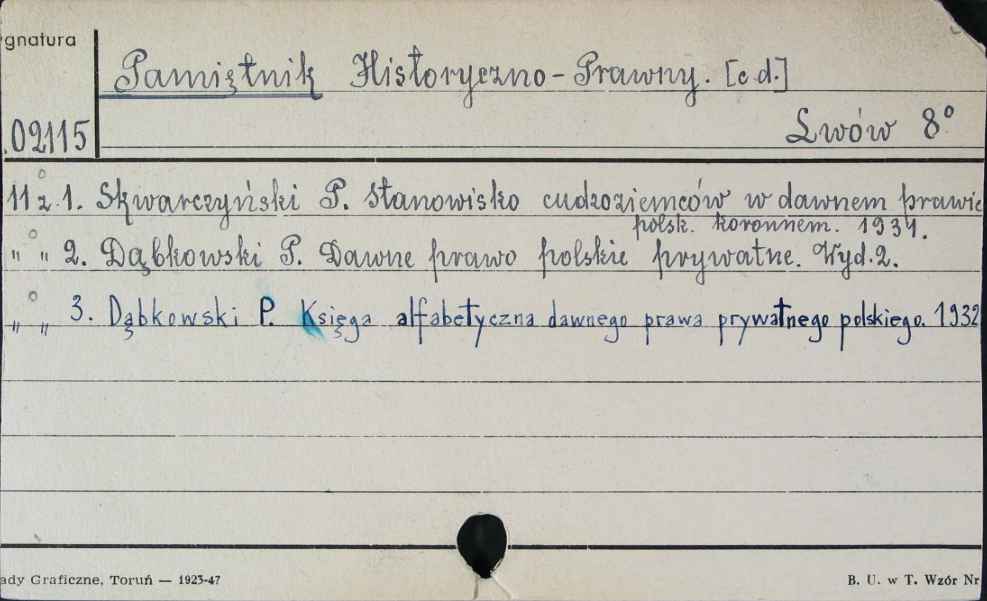 ygnatura
Pamiętnik Historyczno-Prawny. [c.d.]
.02115 Lwów 8°
11 z. 1. Skwarczyński P. Stanowisko cudzoziemców w dawnem prawie
polsk. koronnem. 1931.
" " 2. Dąbkowski P. Dawne prawo polskie prywatne. Wyd. 2.
" " 3. Dąbkowski P. Księga alfabetyczna dawnego prawa prywatnego polskiego. 1932
ady Graficzne, Toruń — 1923-47
B. U. w T. Wzór Nr